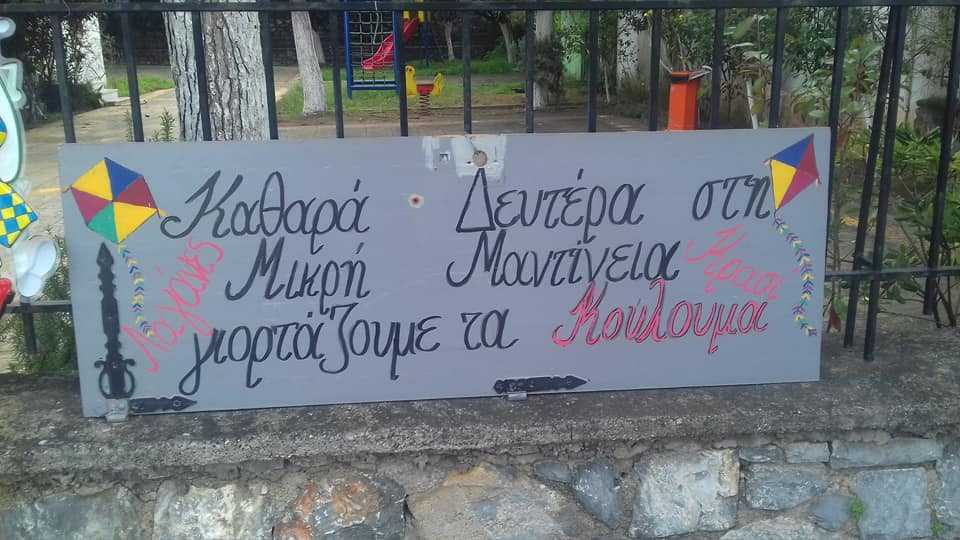 Καθαρά Δευτέρα στη
Μικρή Μαντίνεια
γιορτάζουμε τα Κούλουμα
Λαγάνες
Κρασί